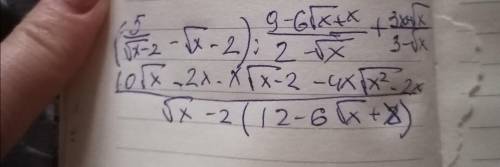 (5/(√x-2) - √x - 2) : (9-6√x+x)/(2-√x) + (3x√x)/(3-√x)
10√x - 2x - x√x - 2 - 4x√x² - 2x
√x - 2 (12 - 6√x + x)